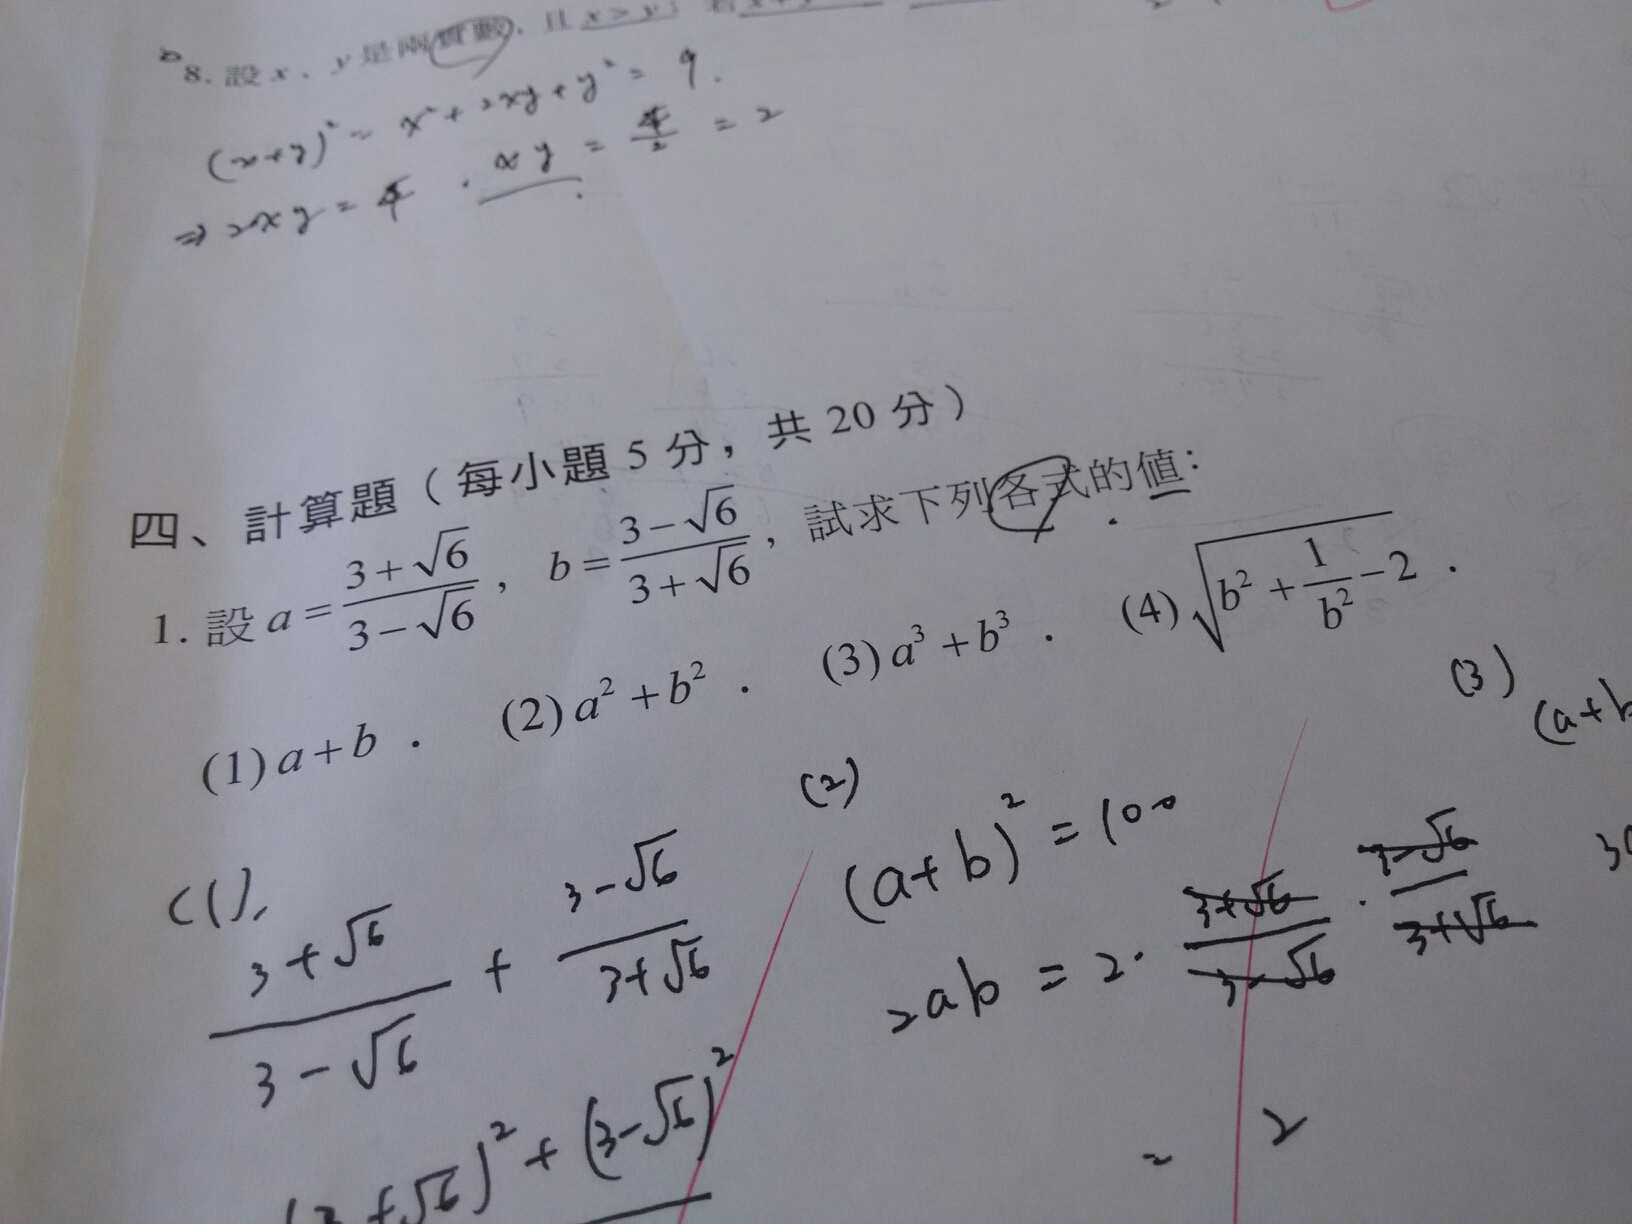 8. 設 x、y 是兩實數，且 x > y；若 x + y
(x+y)² = x² + 2xy + y² = 9.
⇒ 2xy = 4 . xy = 4/2 = 2
四、計算題（每小題 5 分，共 20 分）
1. 設 a = (3+√6)/(3−√6)，b = (3−√6)/(3+√6)，試求下列各式的值：
(1) a + b． (2) a² + b²． (3) a³ + b³． (4) √(b² + 1/b² − 2)．
(1). (3+√6)/(3−√6) + (3−√6)/(3+√6)
(3+√6)² + (3−√6)²
(2)
(a+b)² = 100
2ab = 2·(3+√6)/(3−√6)·(3−√6)/(3+√6)
= 2
(3) (a+b